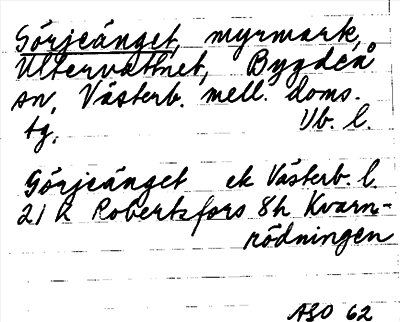 Görjeänget, myrmark,
Ultervattnet, Bygdeå
sn, Västerb. mell. doms.
tg. Vb. l.
Görjeänget ek Västerb. l.
21 K Robertsfors 8h Kvarn-
rödningen
ASO 62